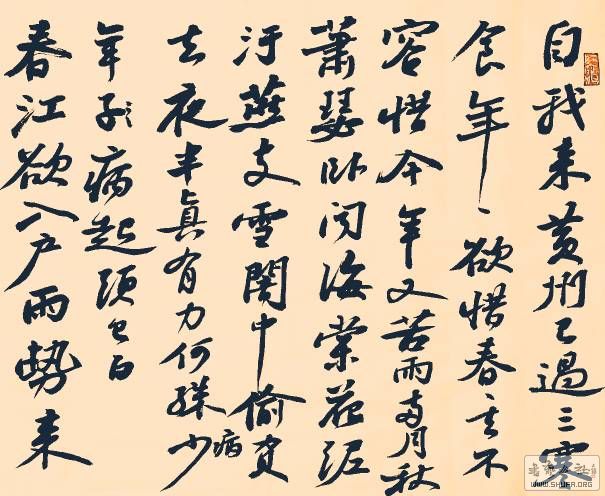 自我来黄州已過三寒
食年〻欲惜春去不
容惜今年又苦雨兩月秋
蕭瑟卧聞海棠花泥
汙燕支雪闇中偷負
去夜半真有力何殊病少
年子病起頭已白
春江欲入户雨勢来
WWW.SHUFA.ORG